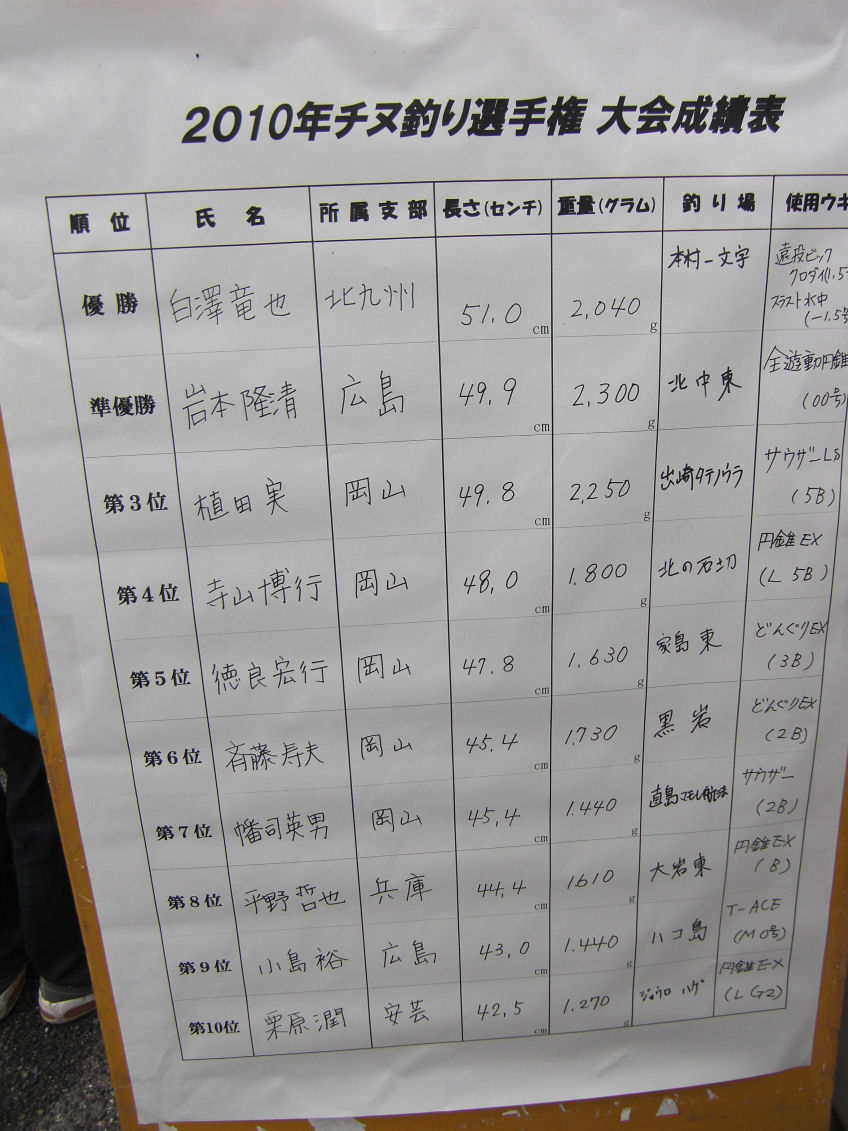 2010年チヌ釣り選手権 大会成績表
順位 氏名 所属支部 長さ(センチ) 重量(グラム) 釣り場 使用ウキ
優勝 白澤竜也 北九州 51.0 cm 2,040 g 本村一文字 遠投ビック
クロダイ(1.5
スラスト水中
(-1.5号
準優勝 岩本隆清 広島 49.9 cm 2,300 g 北中東 全遊動円錐
(00号)
第3位 植田実 岡山 49.8 cm 2,250 g 出崎タテノウラ サウザーLS
(5B)
第4位 寺山博行 岡山 48.0 cm 1.800 g 北の石切 円錐EX
(L 5B)
第5位 徳良宏行 岡山 47.8 cm 1.630 g 家島東 どんぐりEX
(3B)
第6位 斉藤寿夫 岡山 45.4 cm 1.730 g 黒岩 どんぐりEX
(2B)
第7位 幡司英男 岡山 45.4 cm 1.440 g 直島 サウザー
(2B)
第8位 平野哲也 兵庫 44.4 cm 1.610 g 大岩東 円錐EX
(B)
第9位 小島裕 広島 43.0 cm 1.440 g ハコ島 T-ACE
(M0号)
第10位 栗原潤 安芸 42.5 cm 1.270 g ジョウロハゲ 円錐EX
(L G2)